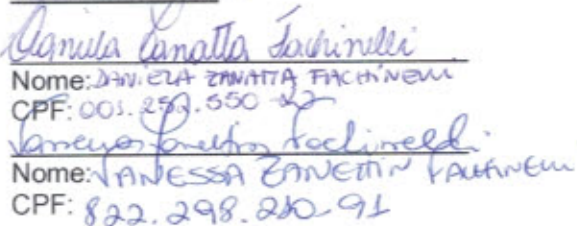 Daniela Zanatta Fachinelli
Nome: DANIELA ZANATTA FACHINELLI
CPF: 001.252.550-22
Vanessa Zanettin Fachinelli
Nome: VANESSA ZANETTIN FACHINELLI
CPF: 822.298.210-91